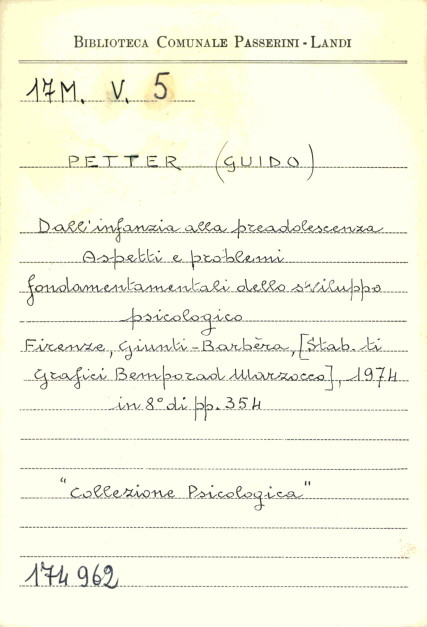 BIBLIOTECA COMUNALE PASSERINI - LANDI
17M. V. 5
PETTER (GUIDO)
Dall'infanzia alla preadolescenza
Aspetti e problemi
fondamentamentali dello sviluppo
psicologico
Firenze, Giunti-Barbèra, [Stab. ti
Grafici Bemporad Marzocco], 1974
in 8° di pp. 354
"Collezione Psicologica"
174962